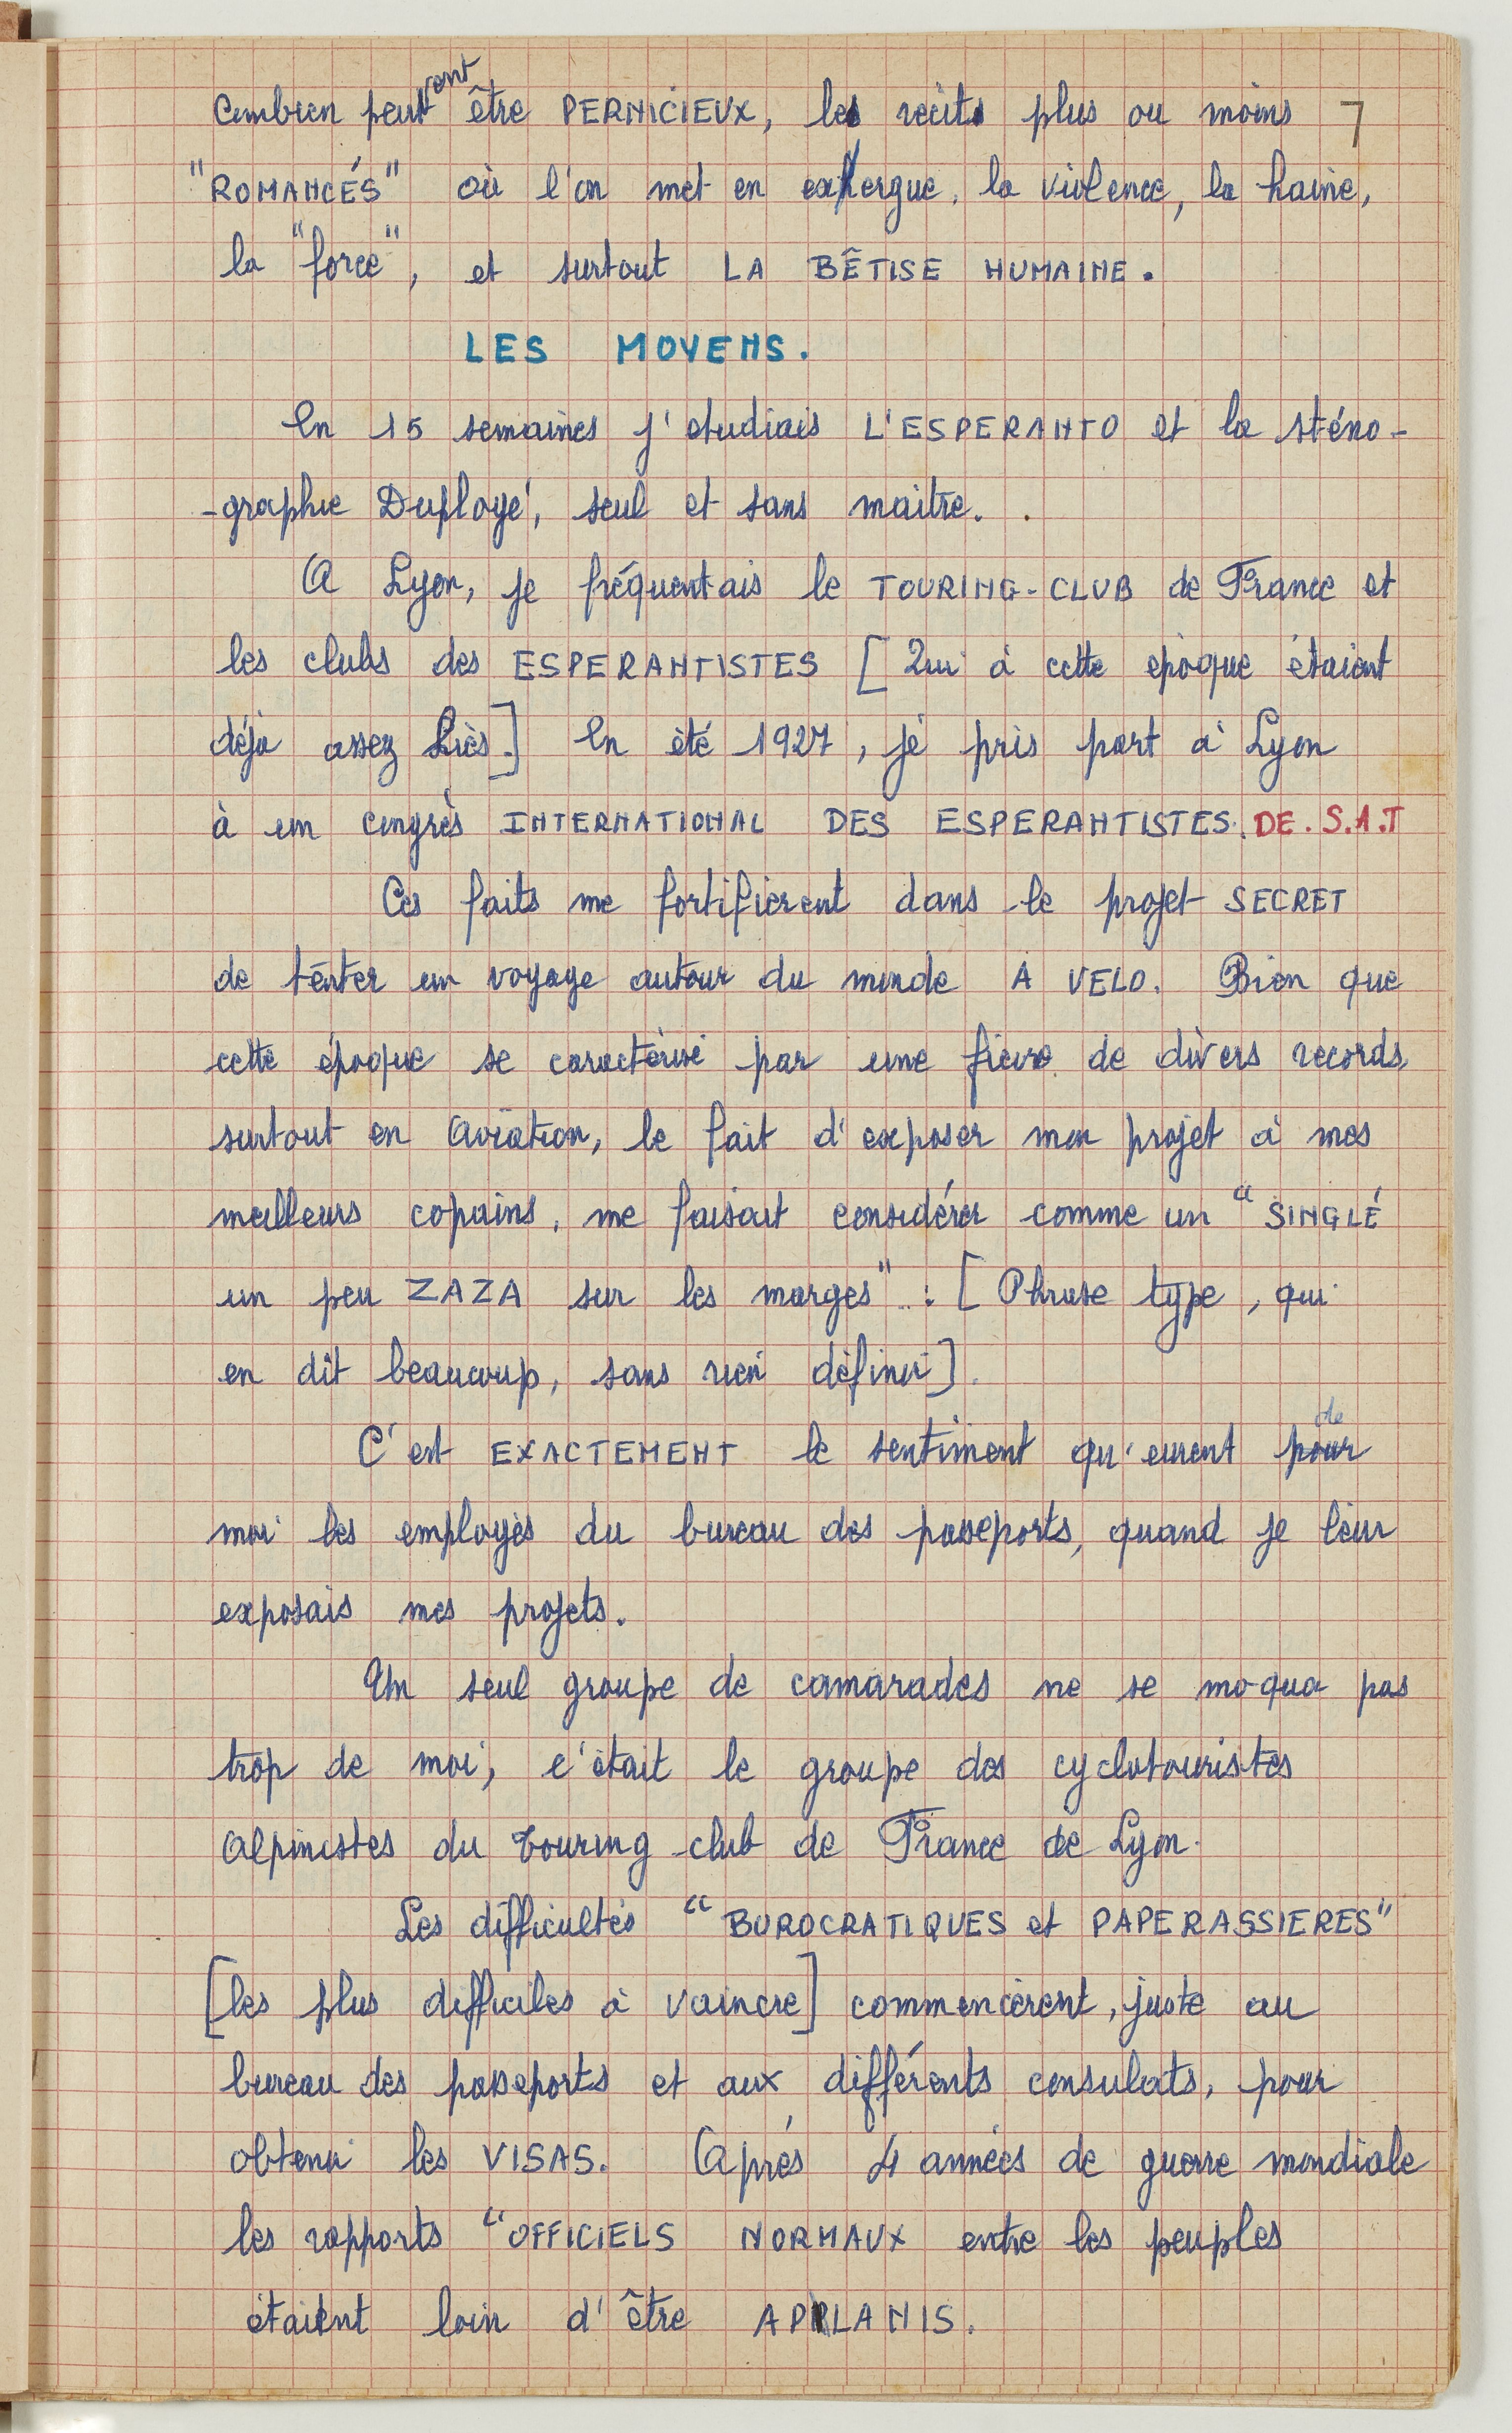 Combien peuvent être PERNICIEUX, les recits plus ou moins 7
"ROMANCÉS" où l'on met en exergue, la violence, la haine,
la "force", et surtout LA BÊTISE HUMAINE.
LES MOYENS.
En 15 semaines j'etudiais L'ESPERANTO et la sténo-
-graphie Duployé, seul et sans maitre.
A Lyon, je fréquentais le TOURING-CLUB de France et
les clubs des ESPERANTISTES [Qui à cette epoque étaient
déjà assez liès.] En été 1927, je pris part à Lyon
à un congrès INTERNATIONAL DES ESPERANTISTES. DE. S.A.T
Ces faits me fortifierent dans le projet SECRET
de tenter un voyage autour du monde A VELO. Bien que
cette époque se caractérise par une fievre de divers records,
surtout en Aviation, le fait d'exposer mon projet à mes
meilleurs copains, me faisait considérer comme un "SINGLÉ
un peu ZAZA sur les marges": [Phrase type, qui
en dit beaucoup, sans rien définir].
C'est EXACTEMENT le sentiment qu'eurent pour de
moi les employés du bureau des passeports, quand je leur
exposais mes projets.
Un seul groupe de camarades ne se moqua pas
trop de moi, c'était le groupe des cyclotouristes
Alpinistes du Touring-club de France de Lyon.
Les difficultés "BUROCRATIQUES et PAPERASSIERES"
[les plus difficiles à vaincre] commencèrent, juste au
bureau des passeports et aux différents consulats, pour
obtenir les VISAS. Après 4 années de guerre mondiale
les rapports "OFFICIELS NORMAUX entre les peuples
étaient loin d'être APLANIS.